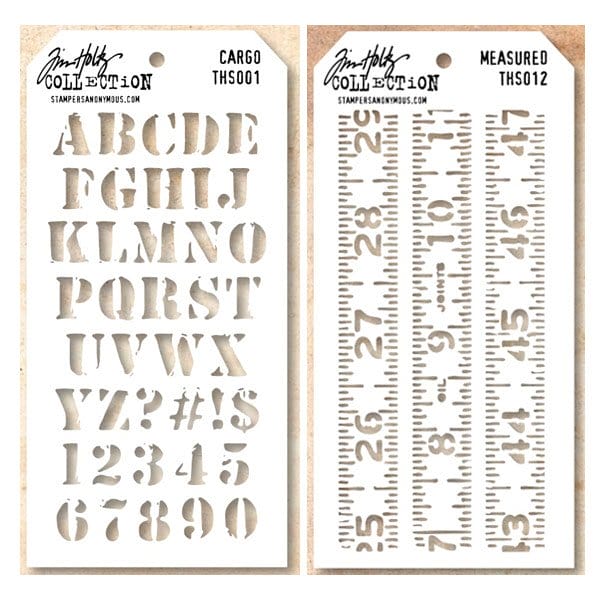 Tim Holtz
COLLECTION
STAMPERSANONYMOUS.COM
CARGO
THS001
ABCDE
FGHIJ
KLMNO
PQRST
UVWX
YZ?#!$
12345
67890
Tim Holtz
COLLECTION
STAMPERSANONYMOUS.COM
MEASURED
THS012
29
28
27
26
25
11
10
JOINTS
9
OIL
8
7
47
46
45
44
43